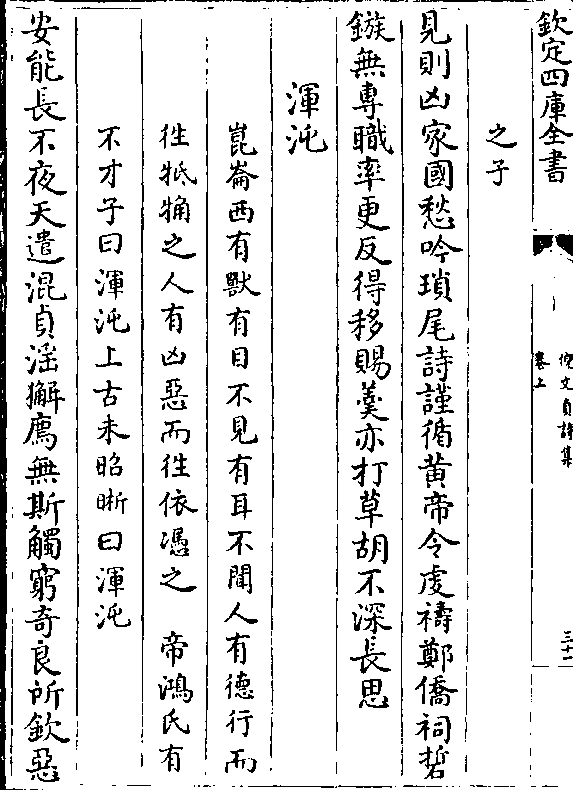 欽定四庫全書
倪文貞詩集
卷上
三十一
之子
見則凶家國愁吟瑣尾詩謹循黄帝令虔禱鄭僑祠哲
鏃無專職率更反得移賜羹亦打草胡不深長思
渾沌
崑崙西有獸有目不見有耳不聞人有德行而
徃牴觸之人有凶惡而徃依憑之 帝鴻氏有
不才子曰渾沌上古未昭晣曰渾沌
安能長不夜天遣混貞滛獬廌無斯觸窮奇良所欽惡